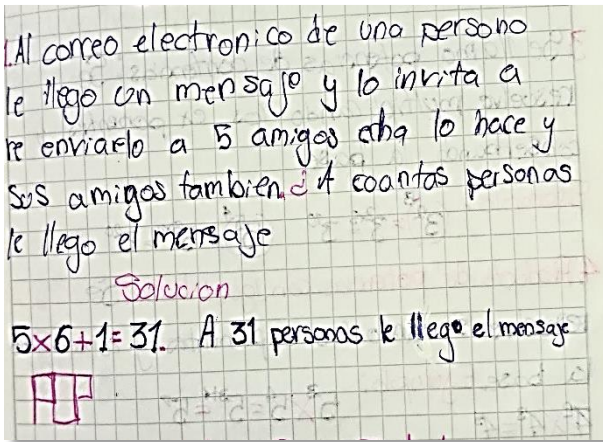 1. Al correo electronico de una persono
le llego un mensaje y lo invita a
re enviarlo a 5 amigos ella lo hace y
sus amigos tambien. ¿ A coantas personas
le llego el mensaje
Solucion
5x6+1=31. A 31 personas le llego el mensaje